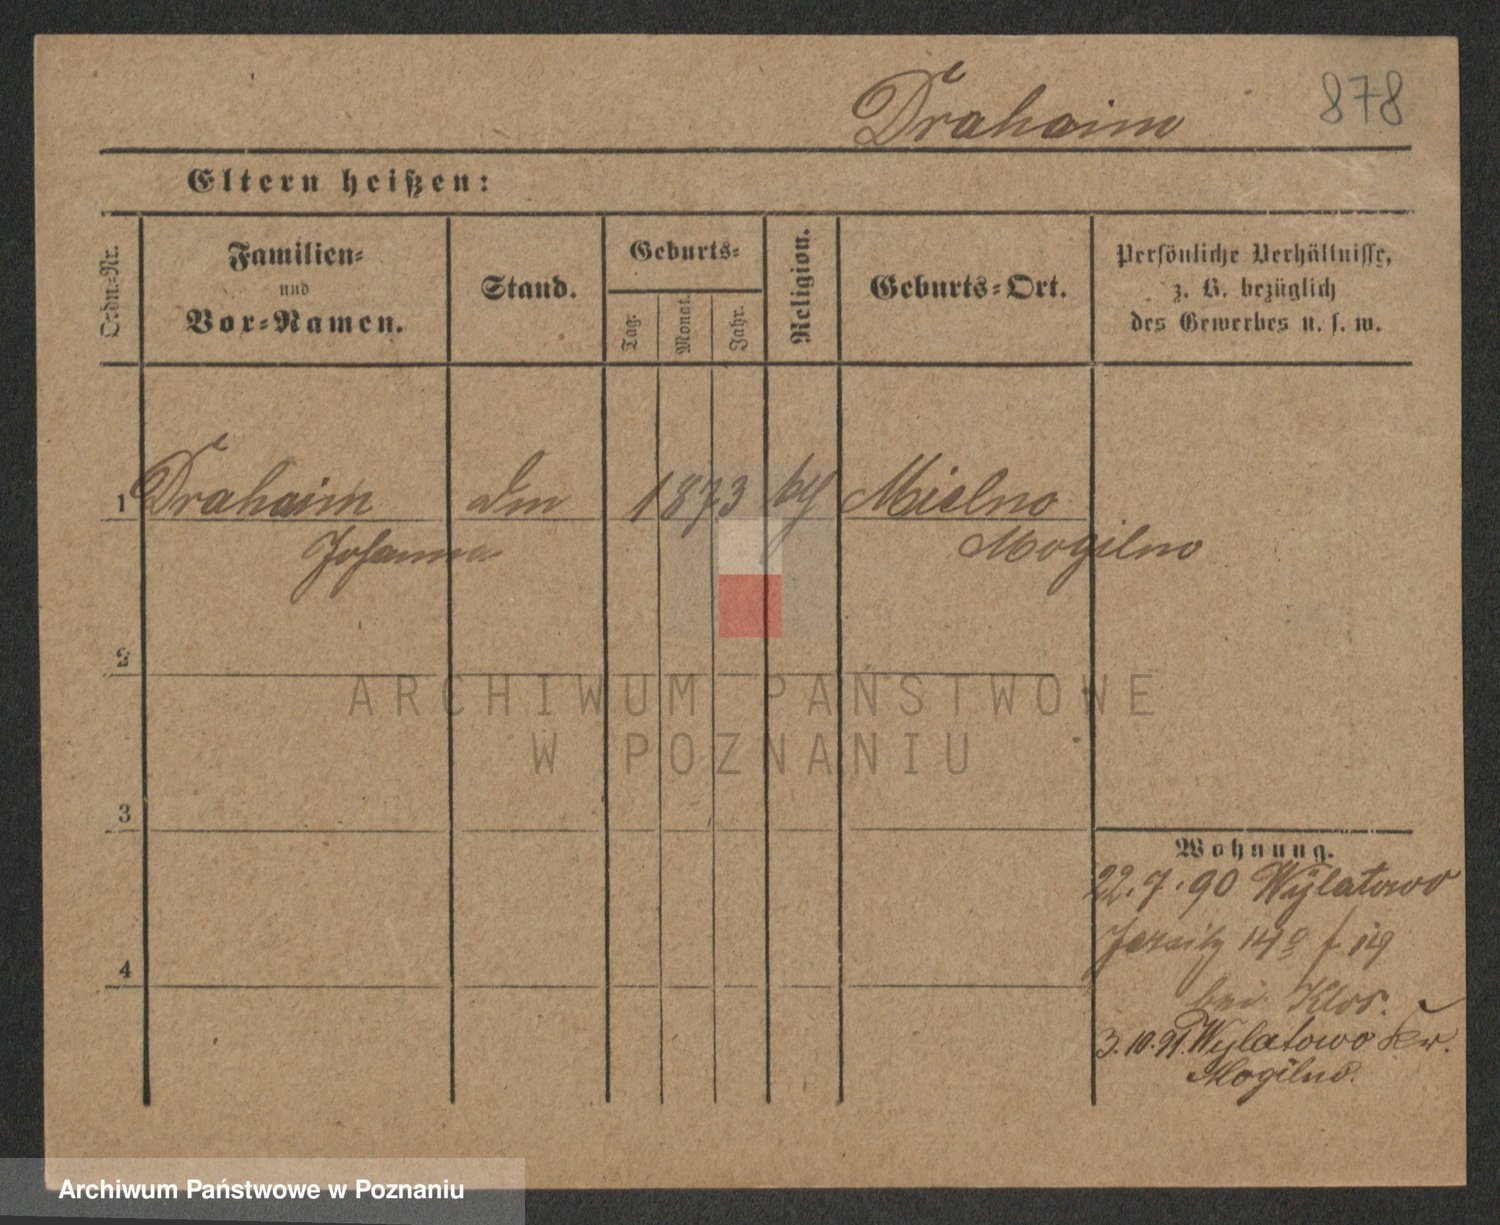 878
Drahaim
Eltern heißen:
Ordn.-Nr.
Familien- und Vor-Namen.
Stand.
Geburts-
Tag.
Monat.
Jahr.
Religion.
Geburts-Ort.
Persönliche Verhältnisse,
z. B. bezüglich
des Gewerbes u. s. w.
1 Drahaim 1873 Mielno
Johanna Mogilno
2
ARCHIWUM PAŃSTWOWE
W POZNANIU
3
Wohnung.
22.7.90 Wylatowo
4
bei
3.10.91. Wylatowo Kr.
Mogilno.
Archiwum Państwowe w Poznaniu